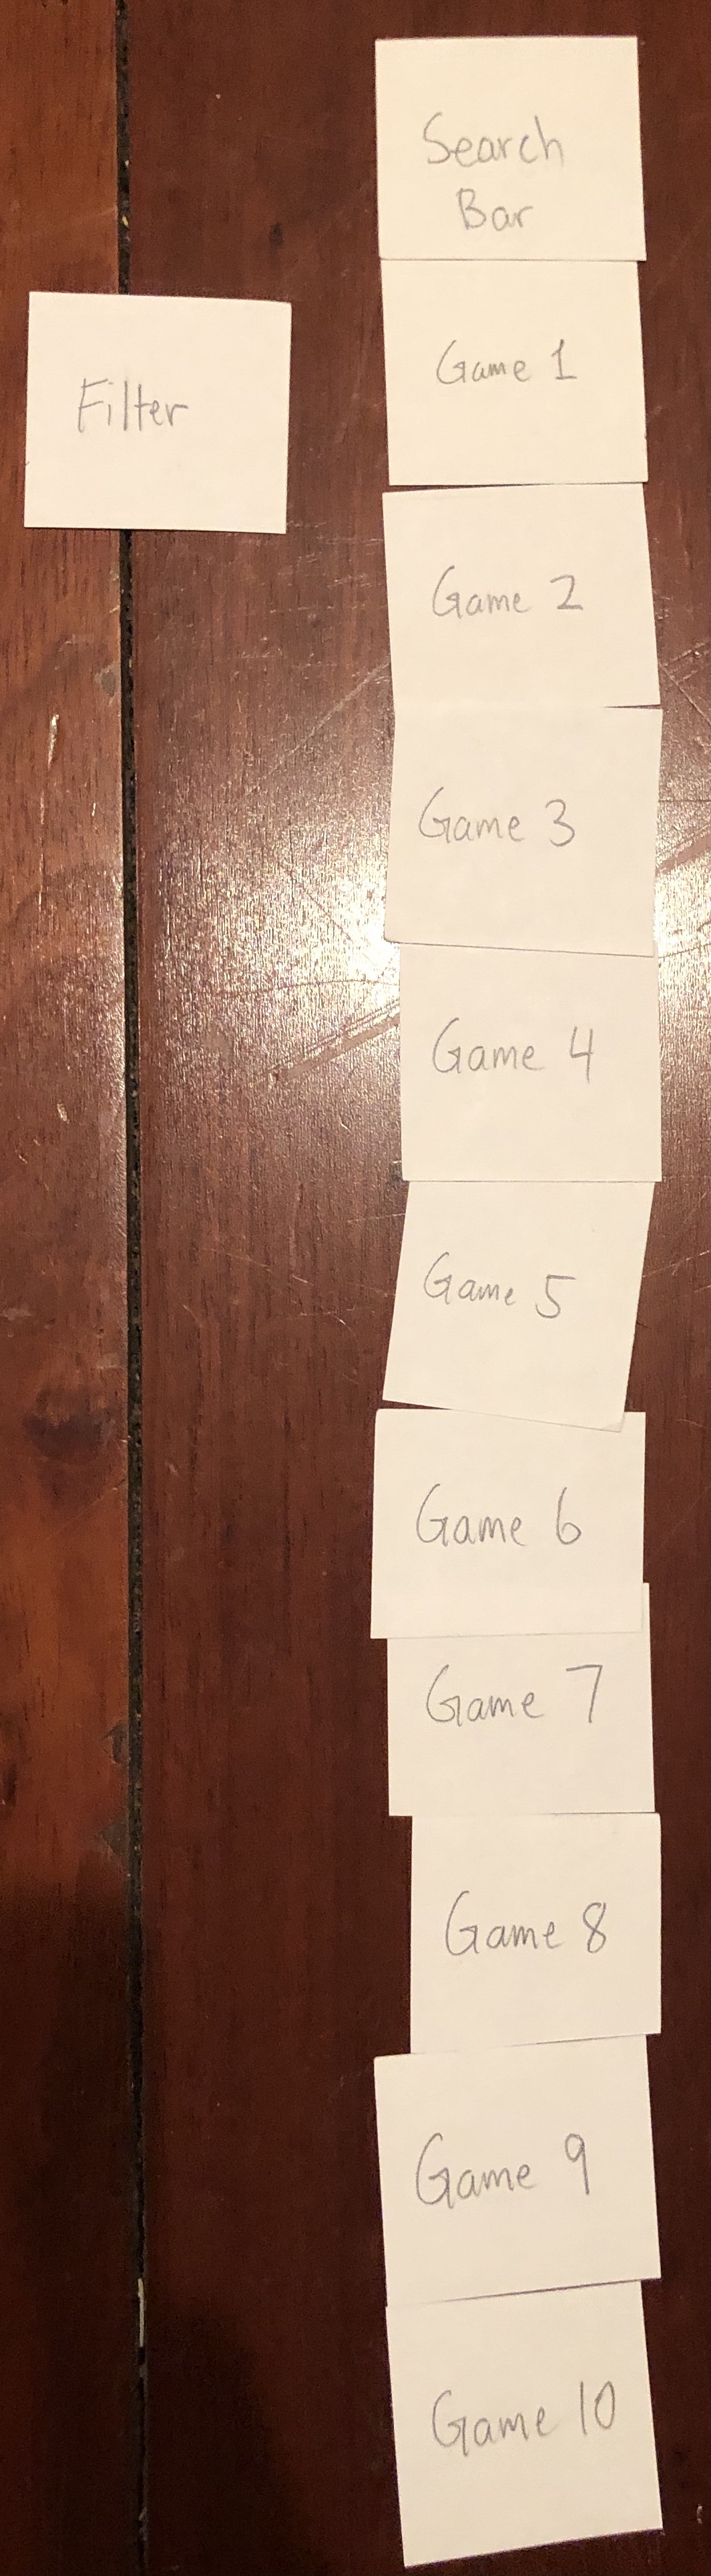 Search
Bar
Filter
Game 1
Game 2
Game 3
Game 4
Game 5
Game 6
Game 7
Game 8
Game 9
Game 10